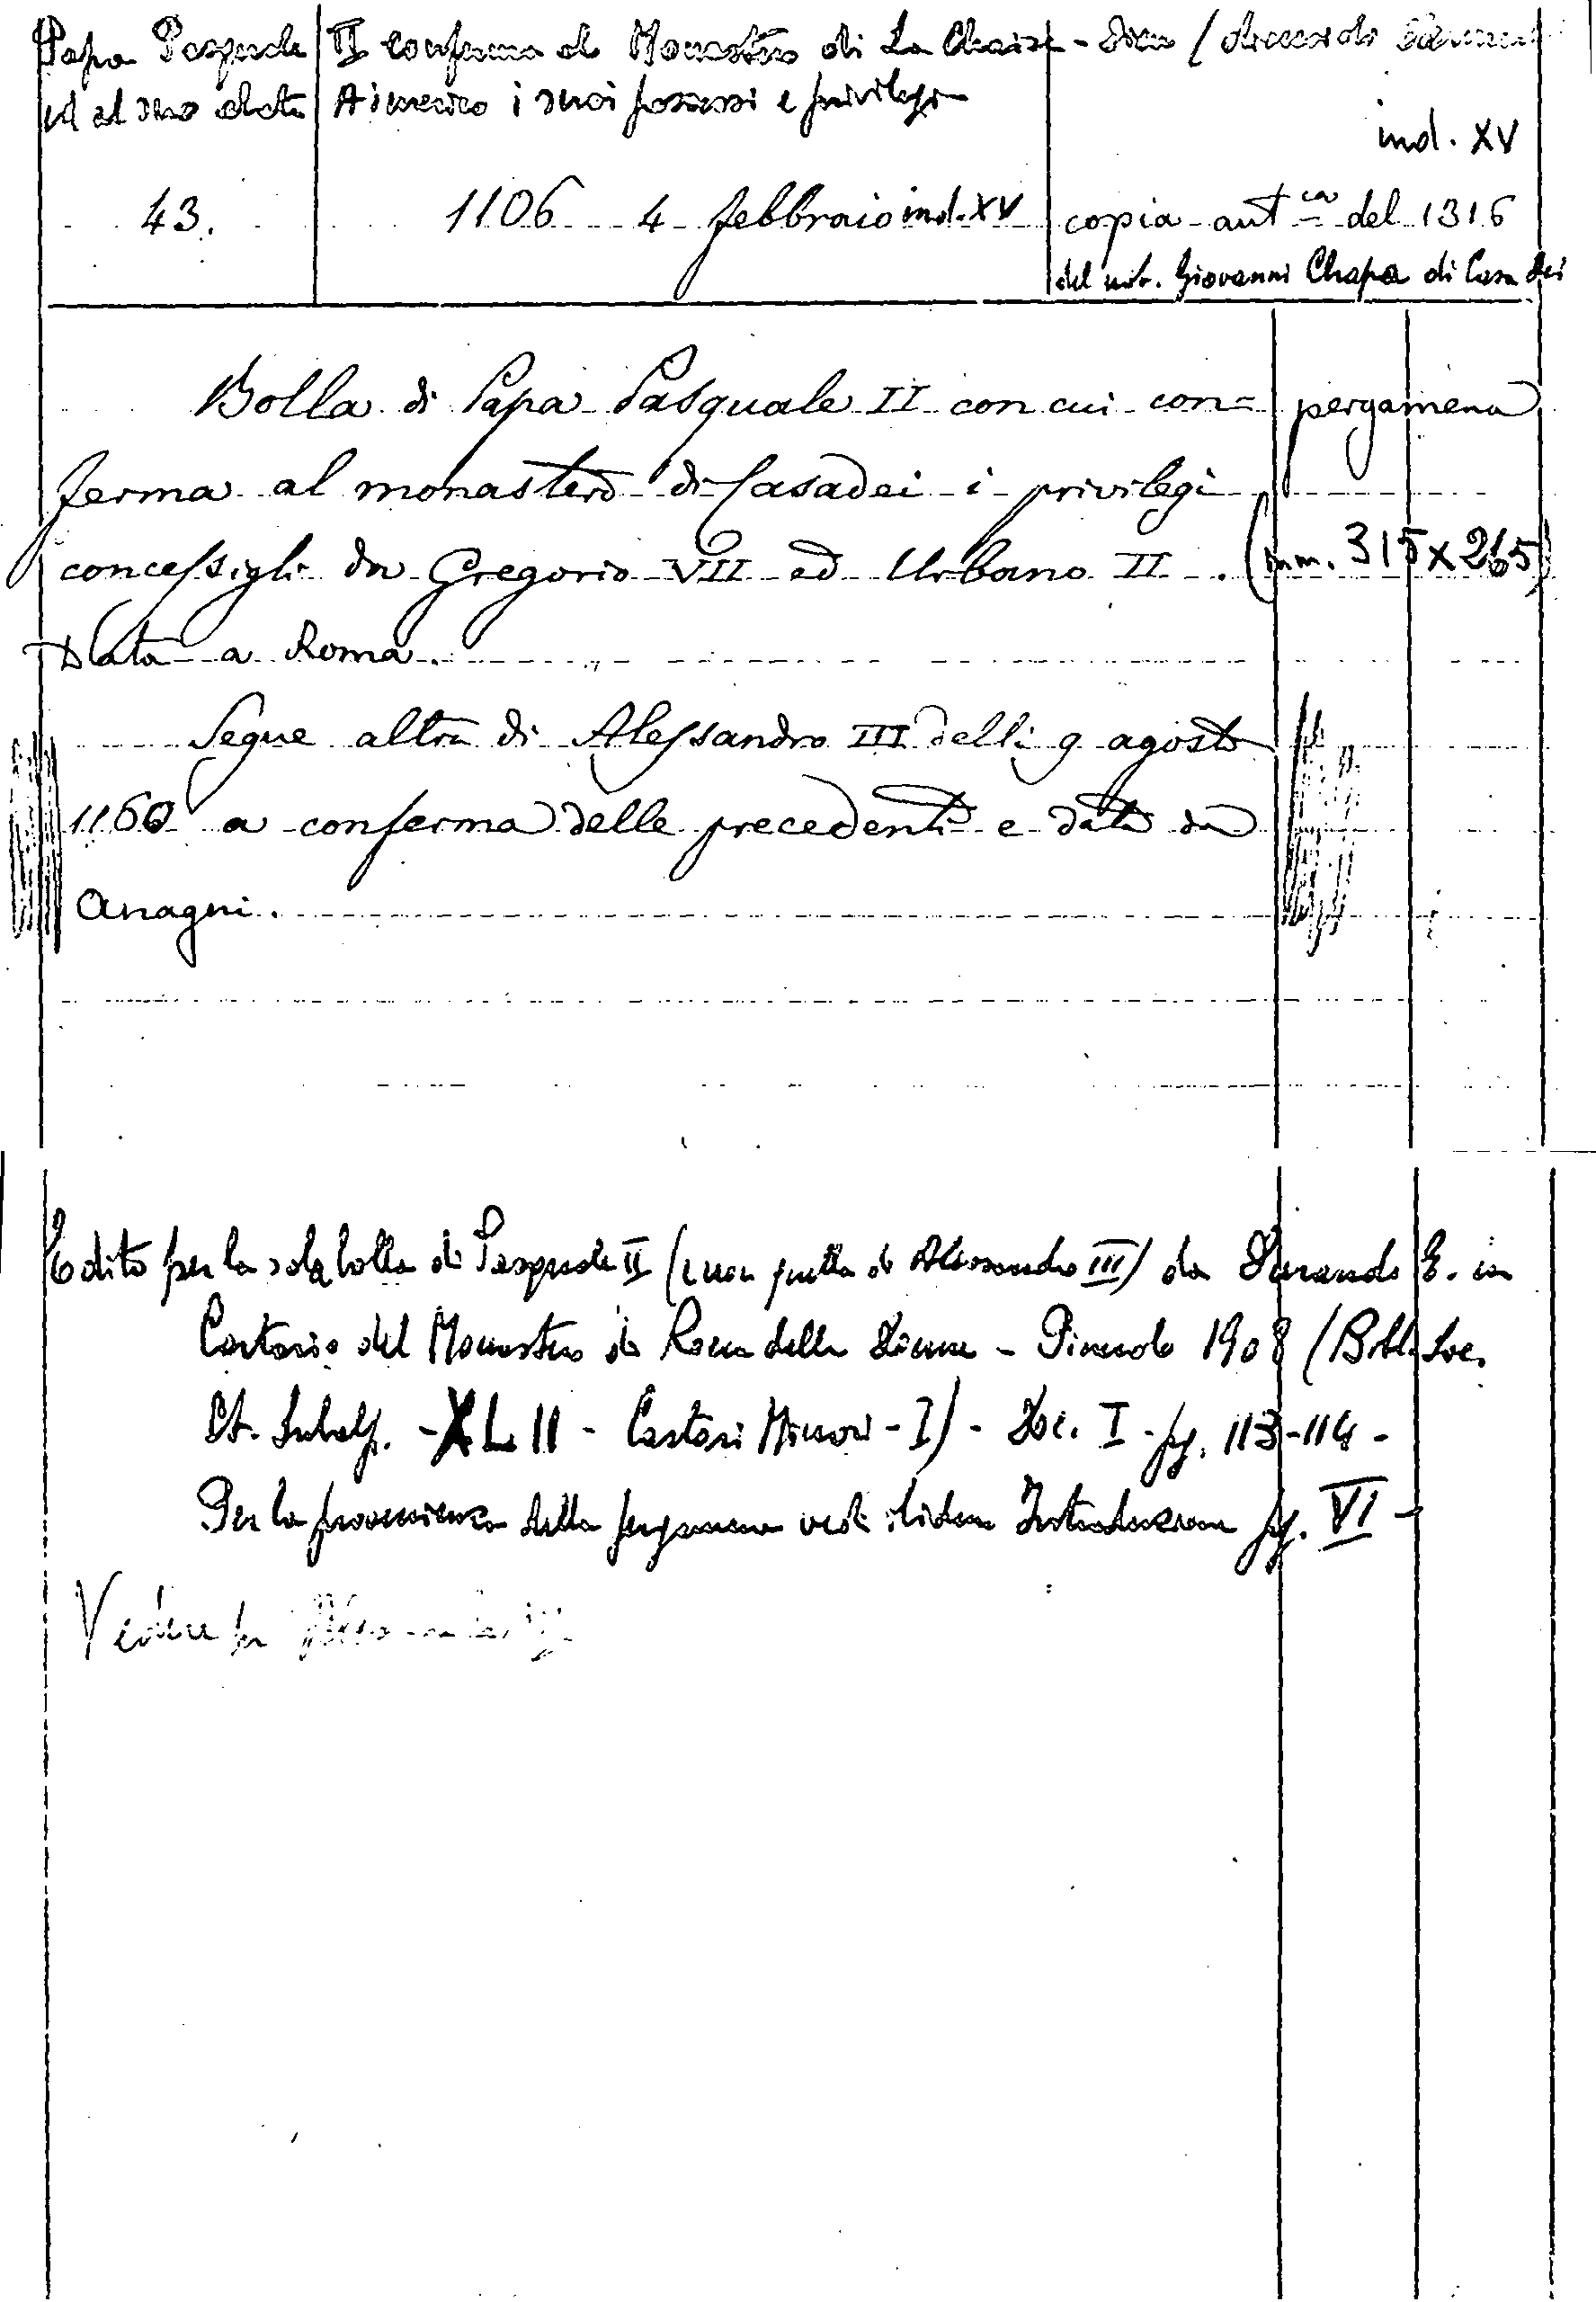 Papa Pasquale II conferma al Monastero di La Chaise-Dieu (diocesi di
ed al suo abate Aimerico i suoi possessi e privilegi
ind. XV
43. 1106 4 febbraio ind. XV copia autca del 1316
del not. Giovanni Chapa di Casa Dei
Bolla di Papa Pasquale II con cui con= pergamena
ferma al monastero di Casadei i privilegi
concessigli da Gregorio VII ed Urbano II. (mm. 315 x 265)
Data a Roma.
Segue altra di Alessandro III delli 9 agosto
1160 a conferma delle precedenti e data da
Anagni.
Edito per la sola bolla di Pasquale II (e non quella di Alessandro III) da Durando E. in
Cartario del Monastero di Rocca delle Donne - Pinerolo 1908 (Bibl. Soc.
St. Subalp. - XLII - Cartari Minori - I) - Doc. I - pg. 113-114 -
Per la provenienza della pergamena vedi ibidem Introduzione pg. VI -
Vedere per